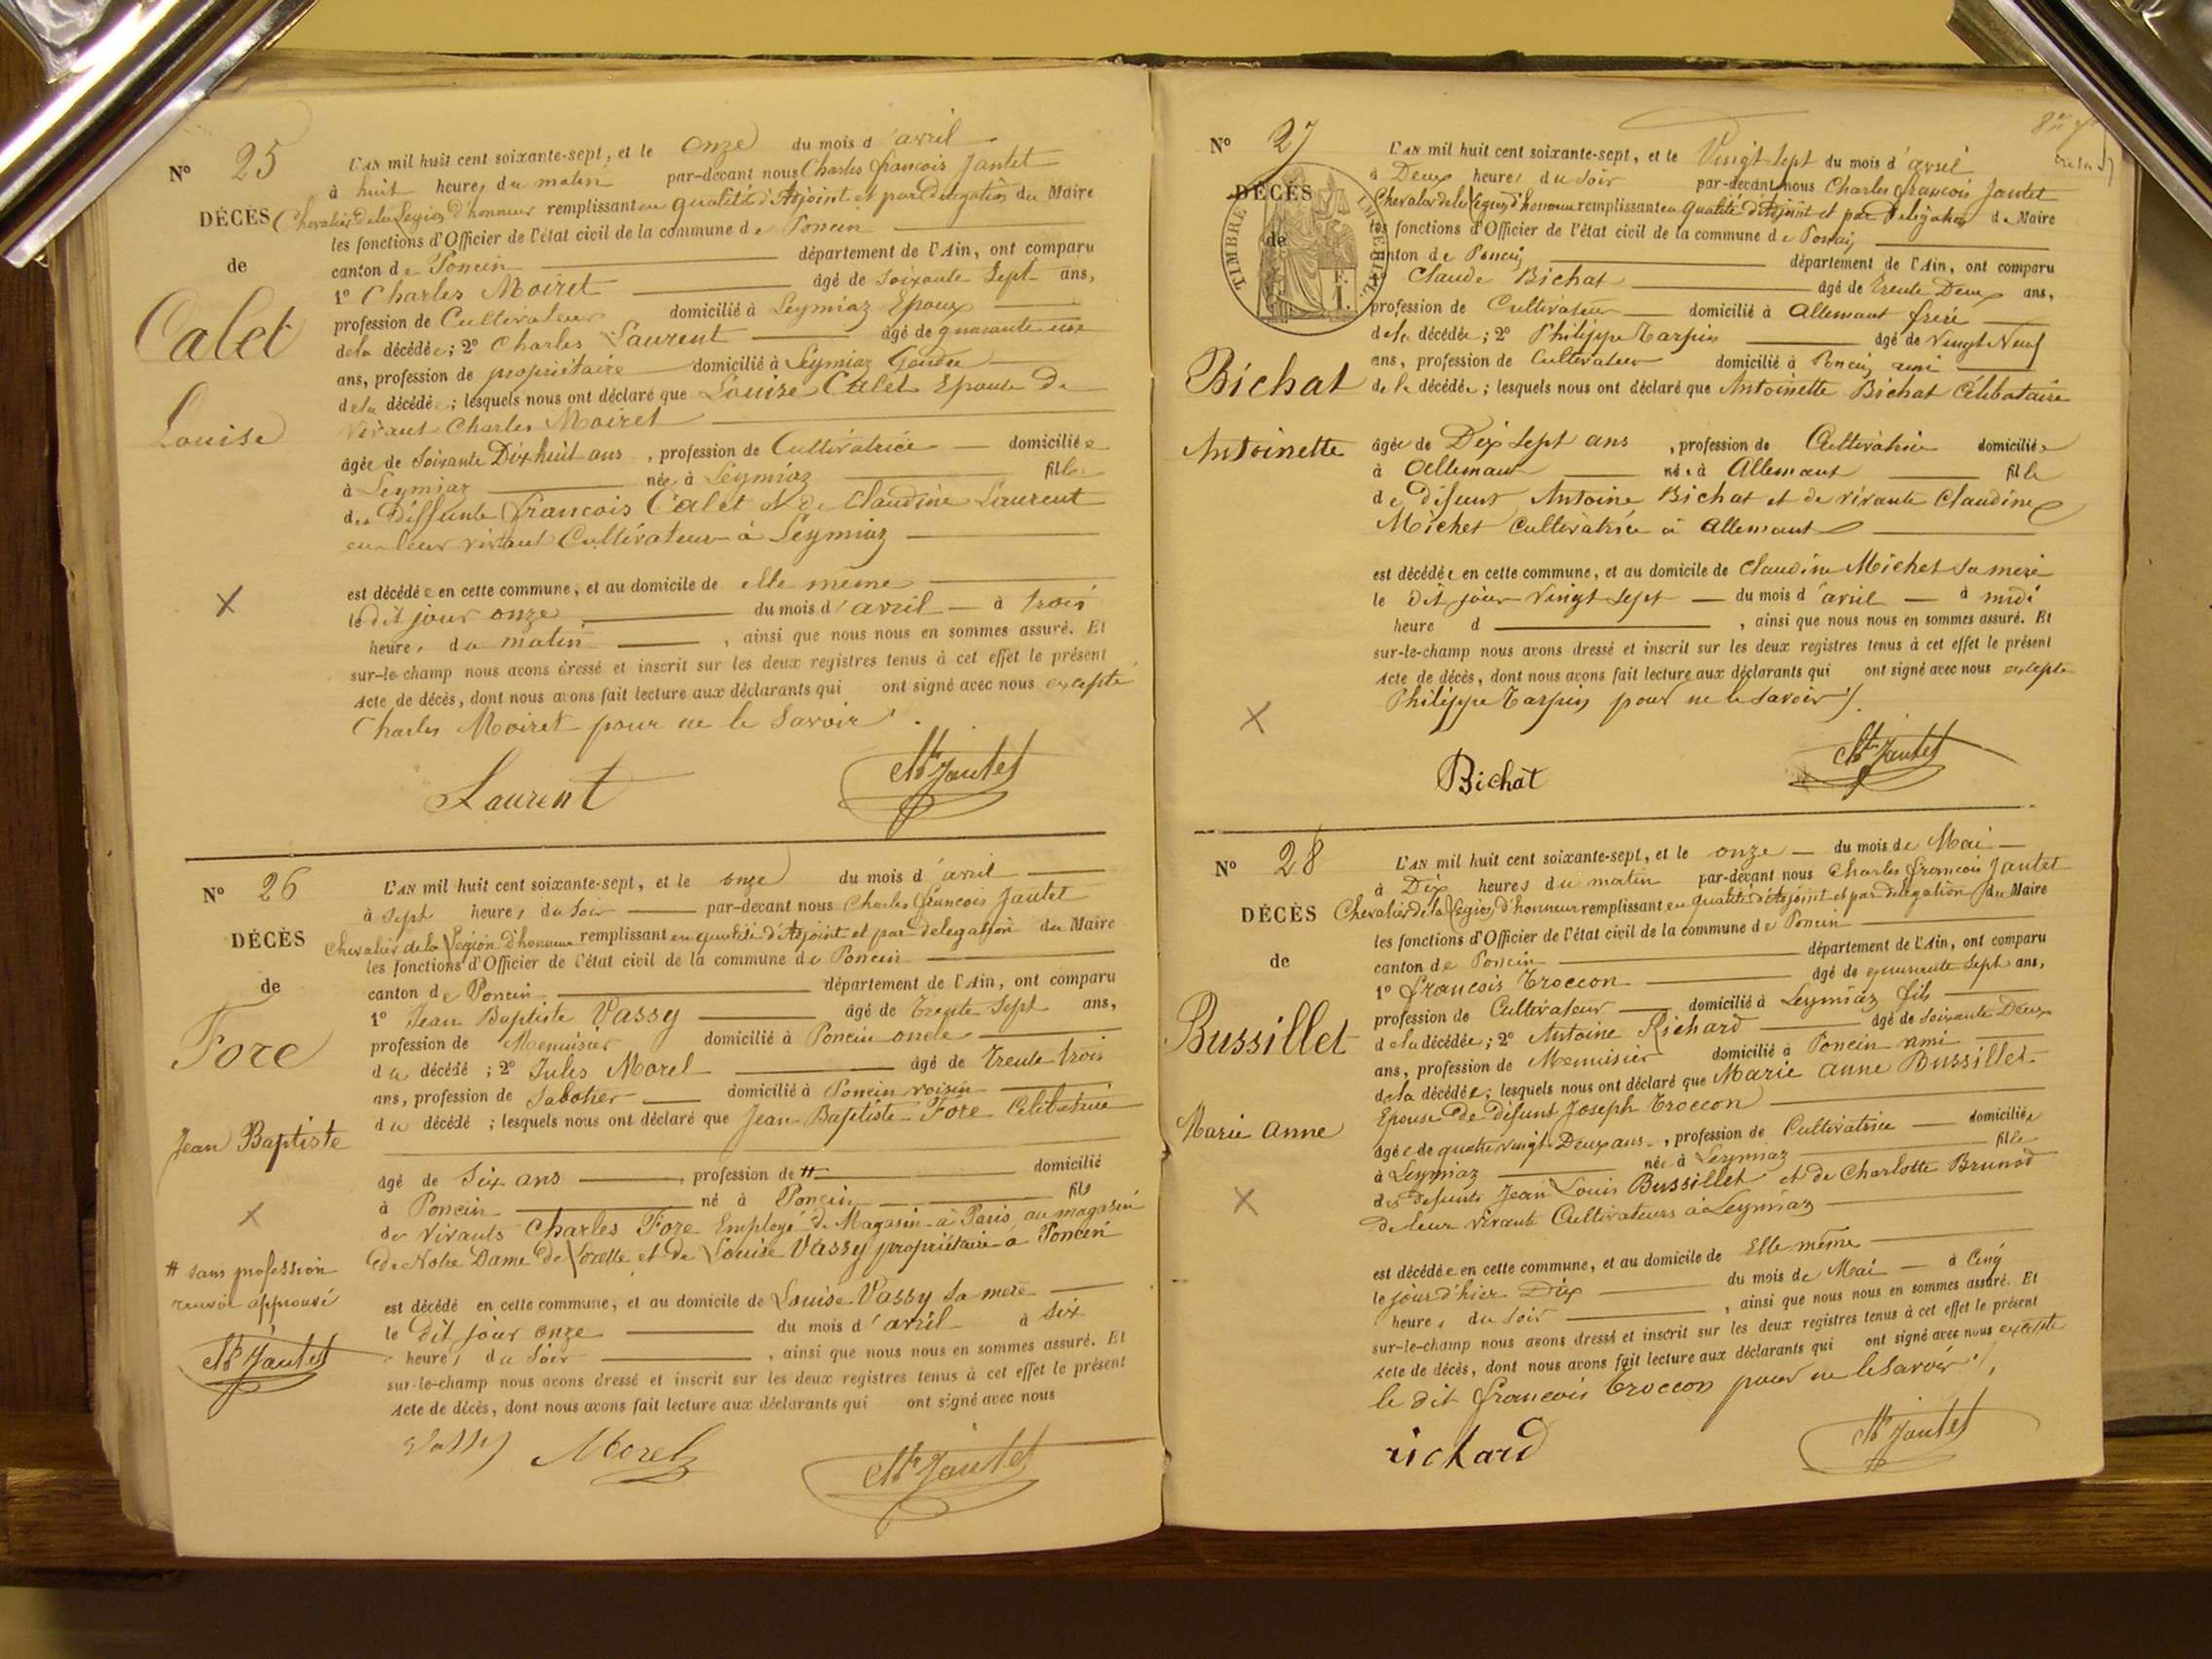 N° 25
L'AN mil huit cent soixante-sept, et le onze du mois d'avril
à huit heures du matin par-devant nous Charles francois Jantet
DÉCÈS Chevalier de la Legion d'honneur remplissant en qualité d'Adjoint et par delegation du Maire
les fonctions d'Officier de l'état civil de la commune de Poncin
de
canton de Poncin département de l'Ain, ont comparu
1° Charles Moiret âgé de soixante Sept ans,
Calet
profession de Cultivateur domicilié à Leymiaz Epoux
de la décédée; 2° Charles Laurent âgé de quarante une
ans, profession de propriétaire domicilié à Leymiaz Gendre
de la décédée; lesquels nous ont déclaré que Louise Calet Epouse de
Louise
vivant Charles Moiret
âgée de Soixante Dix huit ans, profession de Cultivatrice domiciliée
à Leymiaz née à Leymiaz fille
des Deffunts francois Calet et de Claudine Laurent
en leur vivant Cultivateurs à Leymiaz
est décédée en cette commune, et au domicile de elle même
X
le dit jour onze du mois d'avril à trois
heures du matin, ainsi que nous nous en sommes assuré. Et
sur-le-champ nous avons dressé et inscrit sur les deux registres tenus à cet effet le présent
acte de décès, dont nous avons fait lecture aux déclarants qui ont signé avec nous excepté
Charles Moiret pour ne le Savoir
Laurent
Ch Jantet
N° 26
L'AN mil huit cent soixante-sept, et le onze du mois d'avril
à sept heures du soir par-devant nous Charles francois Jantet
DÉCÈS Chevalier de la Légion d'honneur remplissant en qualité d'Adjoint et par delegation du Maire
les fonctions d'Officier de l'état civil de la commune de Poncin
de
canton de Poncin département de l'Ain, ont comparu
1° Jean Baptiste Vassy âgé de trente Sept ans,
Fore
profession de Menuisier domicilié à Poncin oncle
du décédé; 2° Jules Morel âgé de trente trois
ans, profession de Sabotier domicilié à Poncin voisin
du décédé; lesquels nous ont déclaré que Jean Baptiste Fore Célibataire
Jean Baptiste
âgé de Six ans, profession de # domicilié
à Poncin né à Poncin fils
X
de vivants Charles Fore Employé de Magasin à Paris au magasin
de Notre Dame de Lorette et de Louise Vassy propriétaire à Poncin
# sans profession
renvoi approuvé
Ch Jantet
est décédé en cette commune, et au domicile de Louise Vassy sa mere
le dit jour onze du mois d'avril à six
heures du soir, ainsi que nous nous en sommes assuré. Et
sur-le-champ nous avons dressé et inscrit sur les deux registres tenus à cet effet le présent
acte de décès, dont nous avons fait lecture aux déclarants qui ont signé avec nous
Vassy Morel
Ch Jantet
N° 27
L'AN mil huit cent soixante-sept, et le Vingt Sept du mois d'avril
à Deux heures du soir par-devant nous Charles francois Jantet
DÉCÈS Chevalier de la Légion d'honneur remplissant en qualité d'Adjoint et par Delegation du Maire
TIMBRE IMPÉRIAL
les fonctions d'Officier de l'état civil de la commune de Poncin
de
canton de Poncin département de l'Ain, ont comparu
Claude Bichat âgé de trente Deux ans,
profession de Cultivateur domicilié à Allemant frère
de la décédée; 2° Philippe Tarpin âgé de Vingt Neuf
ans, profession de Cultivateur domicilié à Poncin ami
Bichat
de la décédée; lesquels nous ont déclaré que Antoinette Bichat Célibataire
Antoinette
âgée de Dix Sept ans, profession de Cultivatrice domiciliée
à Allemant née à Allemant fille
de Défunt Antoine Bichat et de vivante Claudine
Michet Cultivatrice à Allemant
est décédée en cette commune, et au domicile de Claudine Michet sa mere
le Dit jour Vingt Sept du mois d'avril à midi
heure d, ainsi que nous nous en sommes assuré. Et
sur-le-champ nous avons dressé et inscrit sur les deux registres tenus à cet effet le présent
acte de décès, dont nous avons fait lecture aux déclarants qui ont signé avec nous excepté
X
Philippe Tarpin pour ne le savoir
Bichat
Ch Jantet
N° 28
L'AN mil huit cent soixante-sept, et le onze du mois de Mai
à Dix heures du matin par-devant nous Charles francois Jantet
DÉCÈS Chevalier de la Légion d'honneur remplissant en qualité d'Adjoint et par delegation du Maire
les fonctions d'Officier de l'état civil de la commune de Poncin
de
canton de Poncin département de l'Ain, ont comparu
1° francois Troccon âgé de quarante Sept ans,
Bussillet
profession de Cultivateur domicilié à Leymiaz fils
de la décédée; 2° Antoine Richard âgé de Soixante Deux
ans, profession de Menuisier domicilié à Poncin ami
de la décédée; lesquels nous ont déclaré que Marie Anne Bussillet
Marie Anne
Epouse de Défunt Joseph Troccon
âgée de quatre vingt Deux ans, profession de Cultivatrice domiciliée
à Leymiaz née à Leymiaz fille
X
des défunts Jean Louis Bussillet et de Charlotte Brunod
de leur vivant Cultivateurs à Leymiaz
est décédée en cette commune, et au domicile de Elle même
le jour d'hier Dix du mois de Mai à Cinq
heures du Soir, ainsi que nous nous en sommes assuré. Et
sur-le-champ nous avons dressé et inscrit sur les deux registres tenus à cet effet le présent
acte de décès, dont nous avons fait lecture aux déclarants qui ont signé avec nous excepté
le dit francois Troccon pour ne le Savoir
richard
Ch Jantet